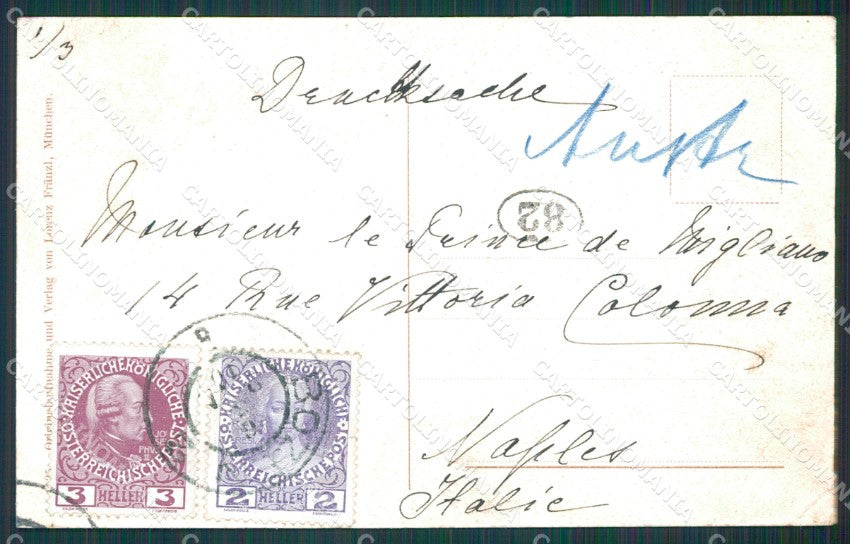 1/3
Drucksache
Austr
82
Monsieur le Prince de Migliano
14 Rue Vittoria Colonna
Naples
Italie
und Verlag von Lorenz Fränzl, München.
KAISERLICHE KÖNIGLICHE
ÖSTERREICHISCHE POST
3 HELLER 3
KAISERLICHE KÖNIGLICHE
ÖSTERREICHISCHE POST
2 HELLER 2
BOZ
CARTOLINOMANIA